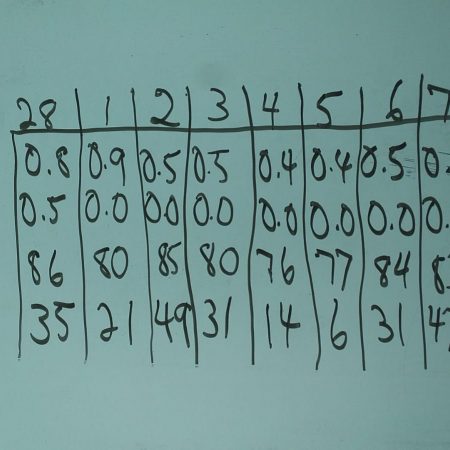 28 1 2 3 4 5 6 7
0.8 0.9 0.5 0.5 0.4 0.4 0.5 0.
0.5 0.0 0.0 0.0 0.0 0.0 0.0 0.
86 80 85 80 76 77 84
35 21 49 31 14 6 31 4